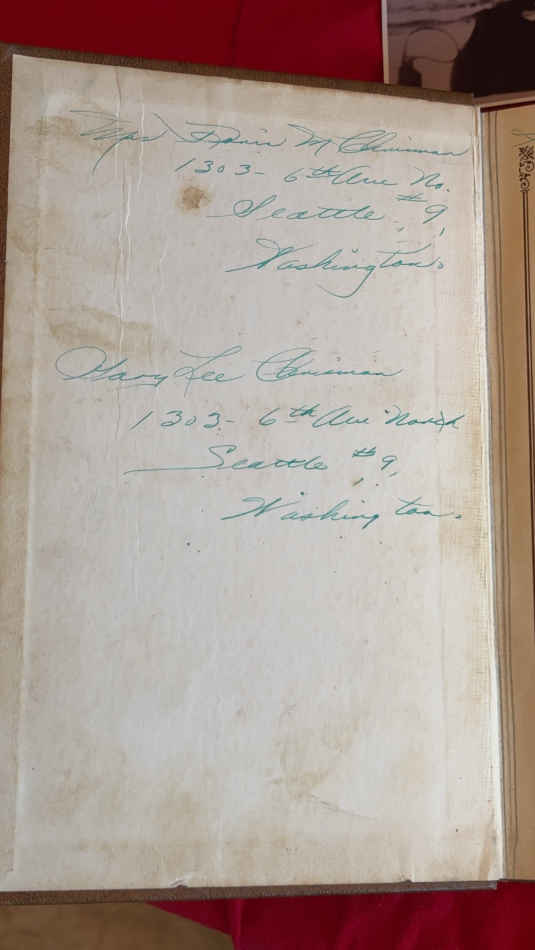 Mrs M Chrisman
1303- 6th Ave No.
Seattle, #9,
Washington.
Lee Chrisman
1303- 6th Ave North
Seattle #9,
Washington.